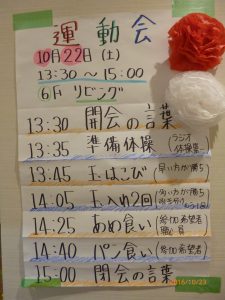 運動会
10月22日(土)
13:30～15:00
6月 リビング
13:30 開会の言葉
13:35 準備体操(ラジオ体操等)
13:45 玉はこび(早い方が勝ち)
14:05 玉入れ2回
14:25 あめ食い(参加希望者 職員)
14:40 パン食い(参加希望者)
15:00 閉会の言葉
2016/10/23